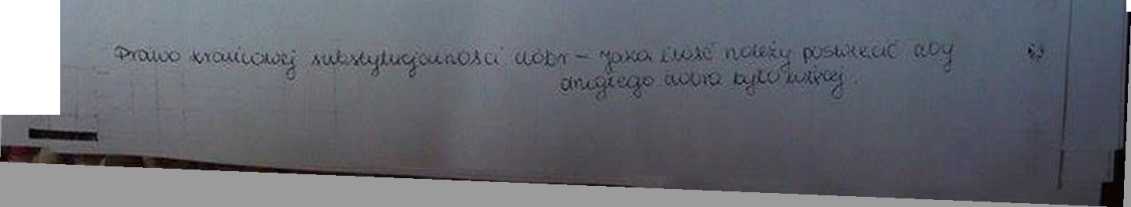 Prawo krańcowej substytucyjności dóbr – jaka ilość należy poświęcić aby
drugiego dobra było więcej.